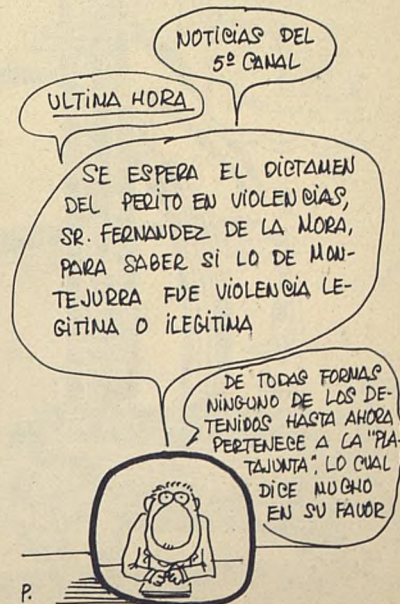 NOTICIAS DEL
5º CANAL
ULTIMA HORA
SE ESPERA EL DICTAMEN
DEL PERITO EN VIOLENCIAS,
SR. FERNANDEZ DE LA MORA,
PARA SABER SI LO DE MON-
TEJURRA FUE VIOLENCIA LE-
GITIMA O ILEGITIMA
DE TODAS FORMAS
NINGUNO DE LOS DE-
TENIDOS HASTA AHORA
PERTENECE A LA "PLA-
TAJUNTA", LO CUAL
DICE MUCHO
EN SU FAVOR
P.